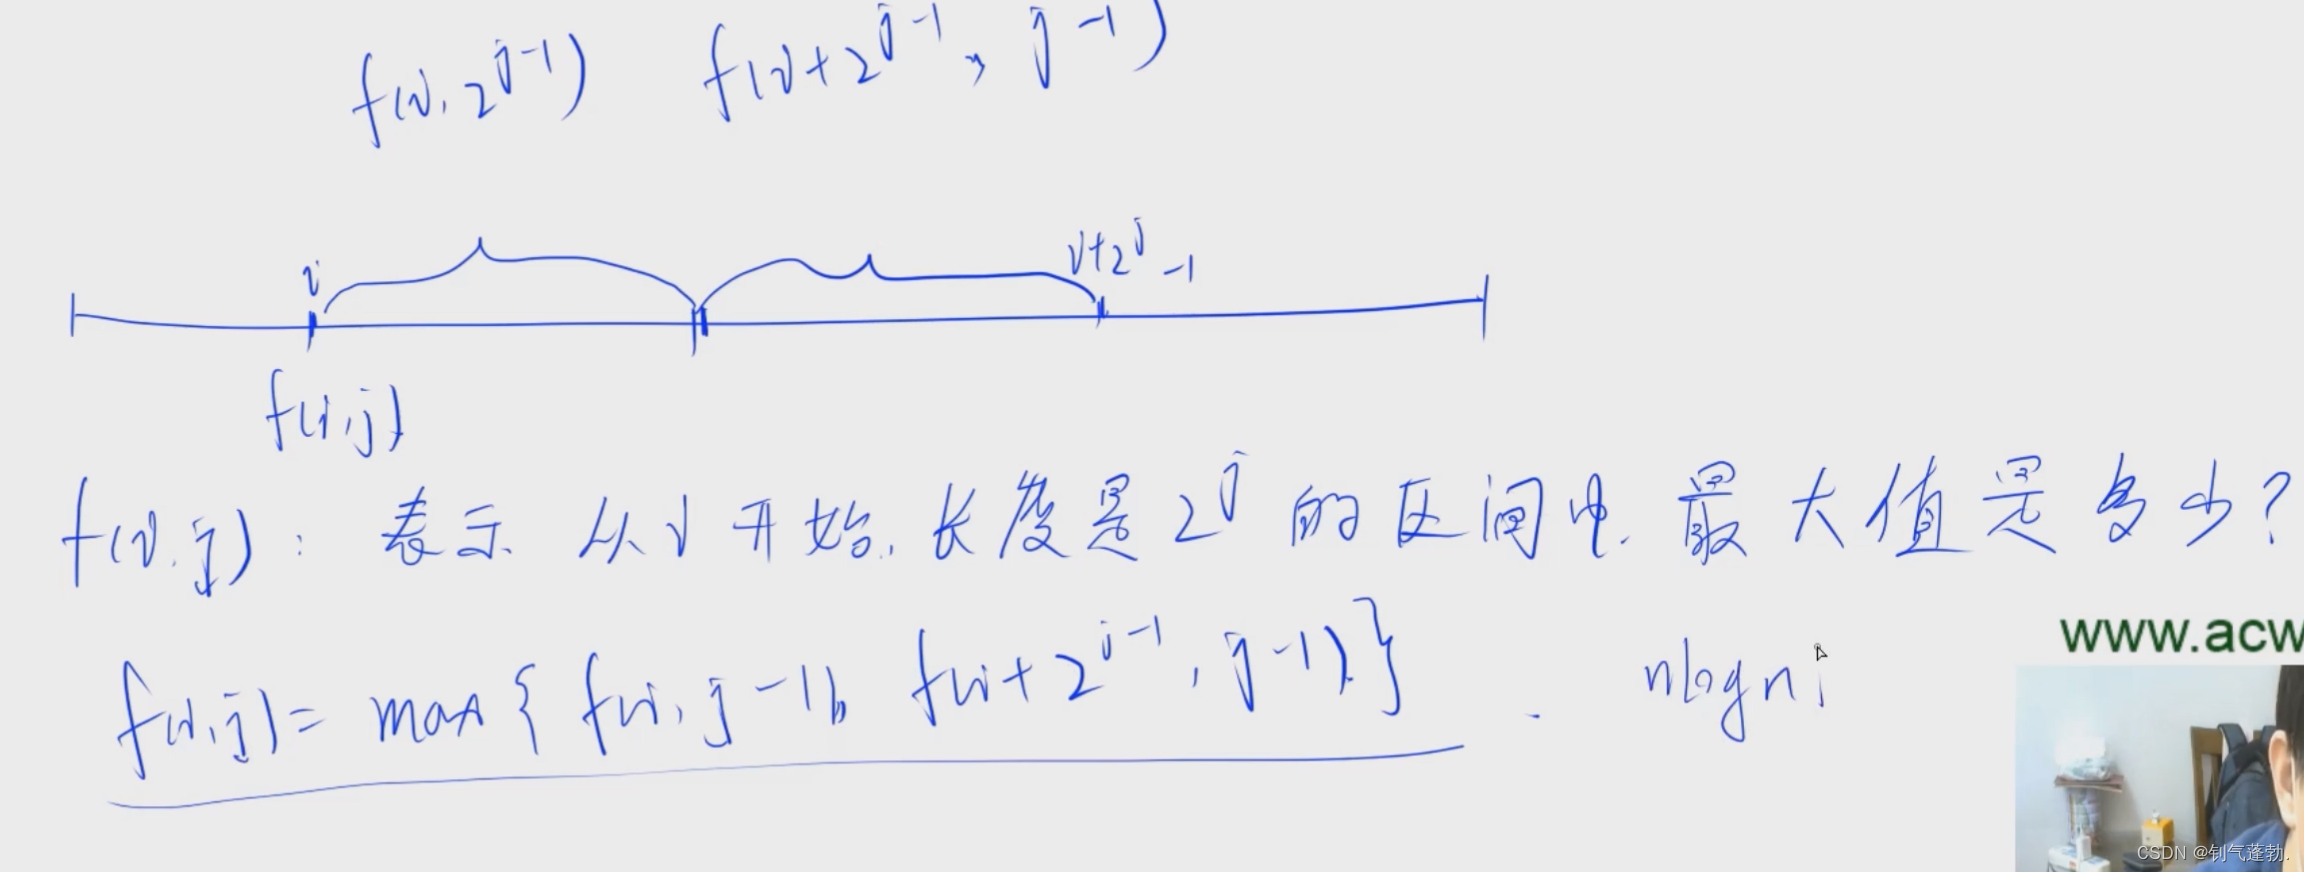 f(i, 2^{j-1}) f(i+2^{j-1}, j-1)
i i+2^j-1
f(i,j)
f(i,j): 表示 从i开始,长度是2^j的区间中.最大值是多少?
f(i,j)=max{f(i,j-1), f(i+2^{j-1},j-1)}. nlogn
www.acw
CSDN @钊气蓬勃.